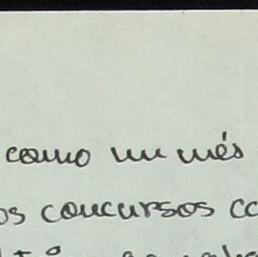 como um mês
os concursos co